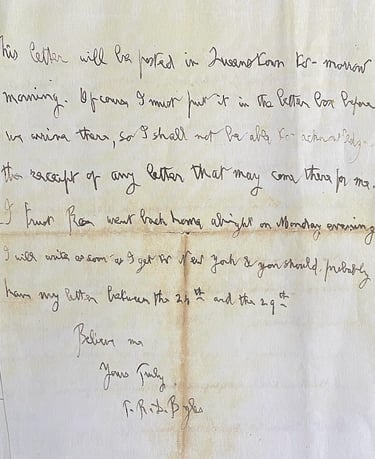 his letter will be posted in Queenstown to-morrow
morning. Of course I must put it in the letter box before
we arrive there, so I shall not be able to acknowledge
the receipt of any letter that may come there for me.
I trust went back home alright on Monday evening
I will write as soon as I get to New York & you should probably
have my letter between the 24th and the 29th
Believe me
Yours Truly
T. R. D. Byles